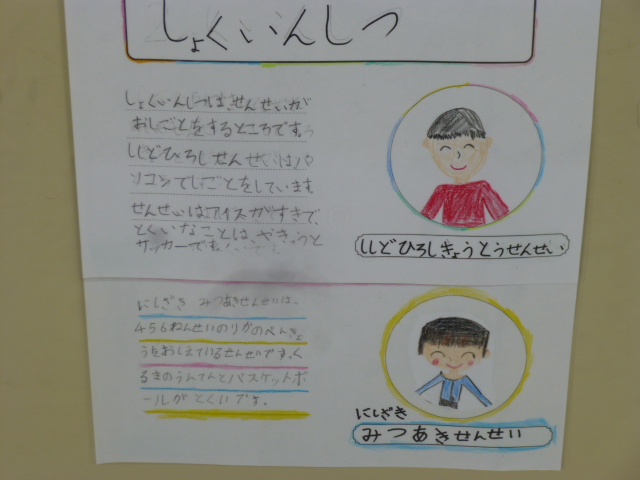 しょくいんしつ
しょくいんしつは、せんせいが
おしごとをするところです。
ししどひろしせんせいはパ
ソコンでしごとをしています
せんせいはアイスがすきで、
とくいなことは やきゅうと
サッカーです。
ししどひろしきょうとうせんせい
にしざき みつあきせんせいは、
456ねんせいのりかのべんきょ
うをおしえているせんせいです。く
るまのうんてんとバスケットボ
ールがとくいです。
にしざき
みつあきせんせい